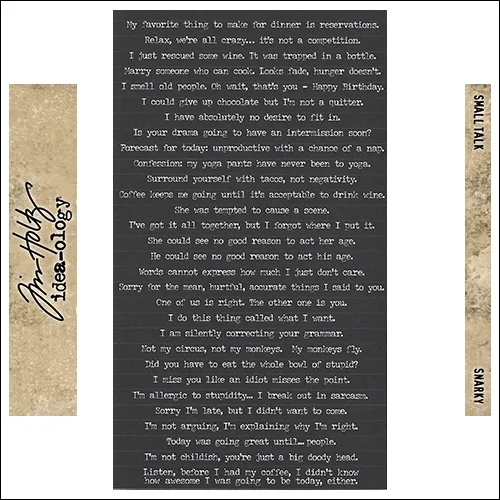 My favorite thing to make for dinner is reservations.
Relax, we're all crazy... it's not a competition.
I just rescued some wine. It was trapped in a bottle.
Marry someone who can cook. Looks fade, hunger doesn't.
I smell old people. Oh wait, that's you - Happy Birthday.
I could give up chocolate but I'm not a quitter.
I have absolutely no desire to fit in.
Is your drama going to have an intermission soon?
Forecast for today: unproductive with a chance of a nap.
Confession: my yoga pants have never been to yoga.
Surround yourself with tacos, not negativity.
Coffee keeps me going until it's acceptable to drink wine.
She was tempted to cause a scene.
I've got it all together, but I forgot where I put it.
She could see no good reason to act her age.
He could see no good reason to act his age.
Words cannot express how much I just don't care.
Sorry for the mean, hurtful, accurate things I said to you.
One of us is right. The other one is you.
I do this thing called what I want.
I am silently correcting your grammar.
Not my circus, not my monkeys. My monkeys fly.
Did you have to eat the whole bowl of stupid?
I miss you like an idiot misses the point.
I'm allergic to stupidity... I break out in sarcasm.
Sorry I'm late, but I didn't want to come.
I'm not arguing, I'm explaining why I'm right.
Today was going great until... people.
I'm not childish, you're just a big doody head.
Listen, before I had my coffee, I didn't know
how awesome I was going to be today, either.
Tim Holtz
idea-ology
SMALL TALK
SNARKY